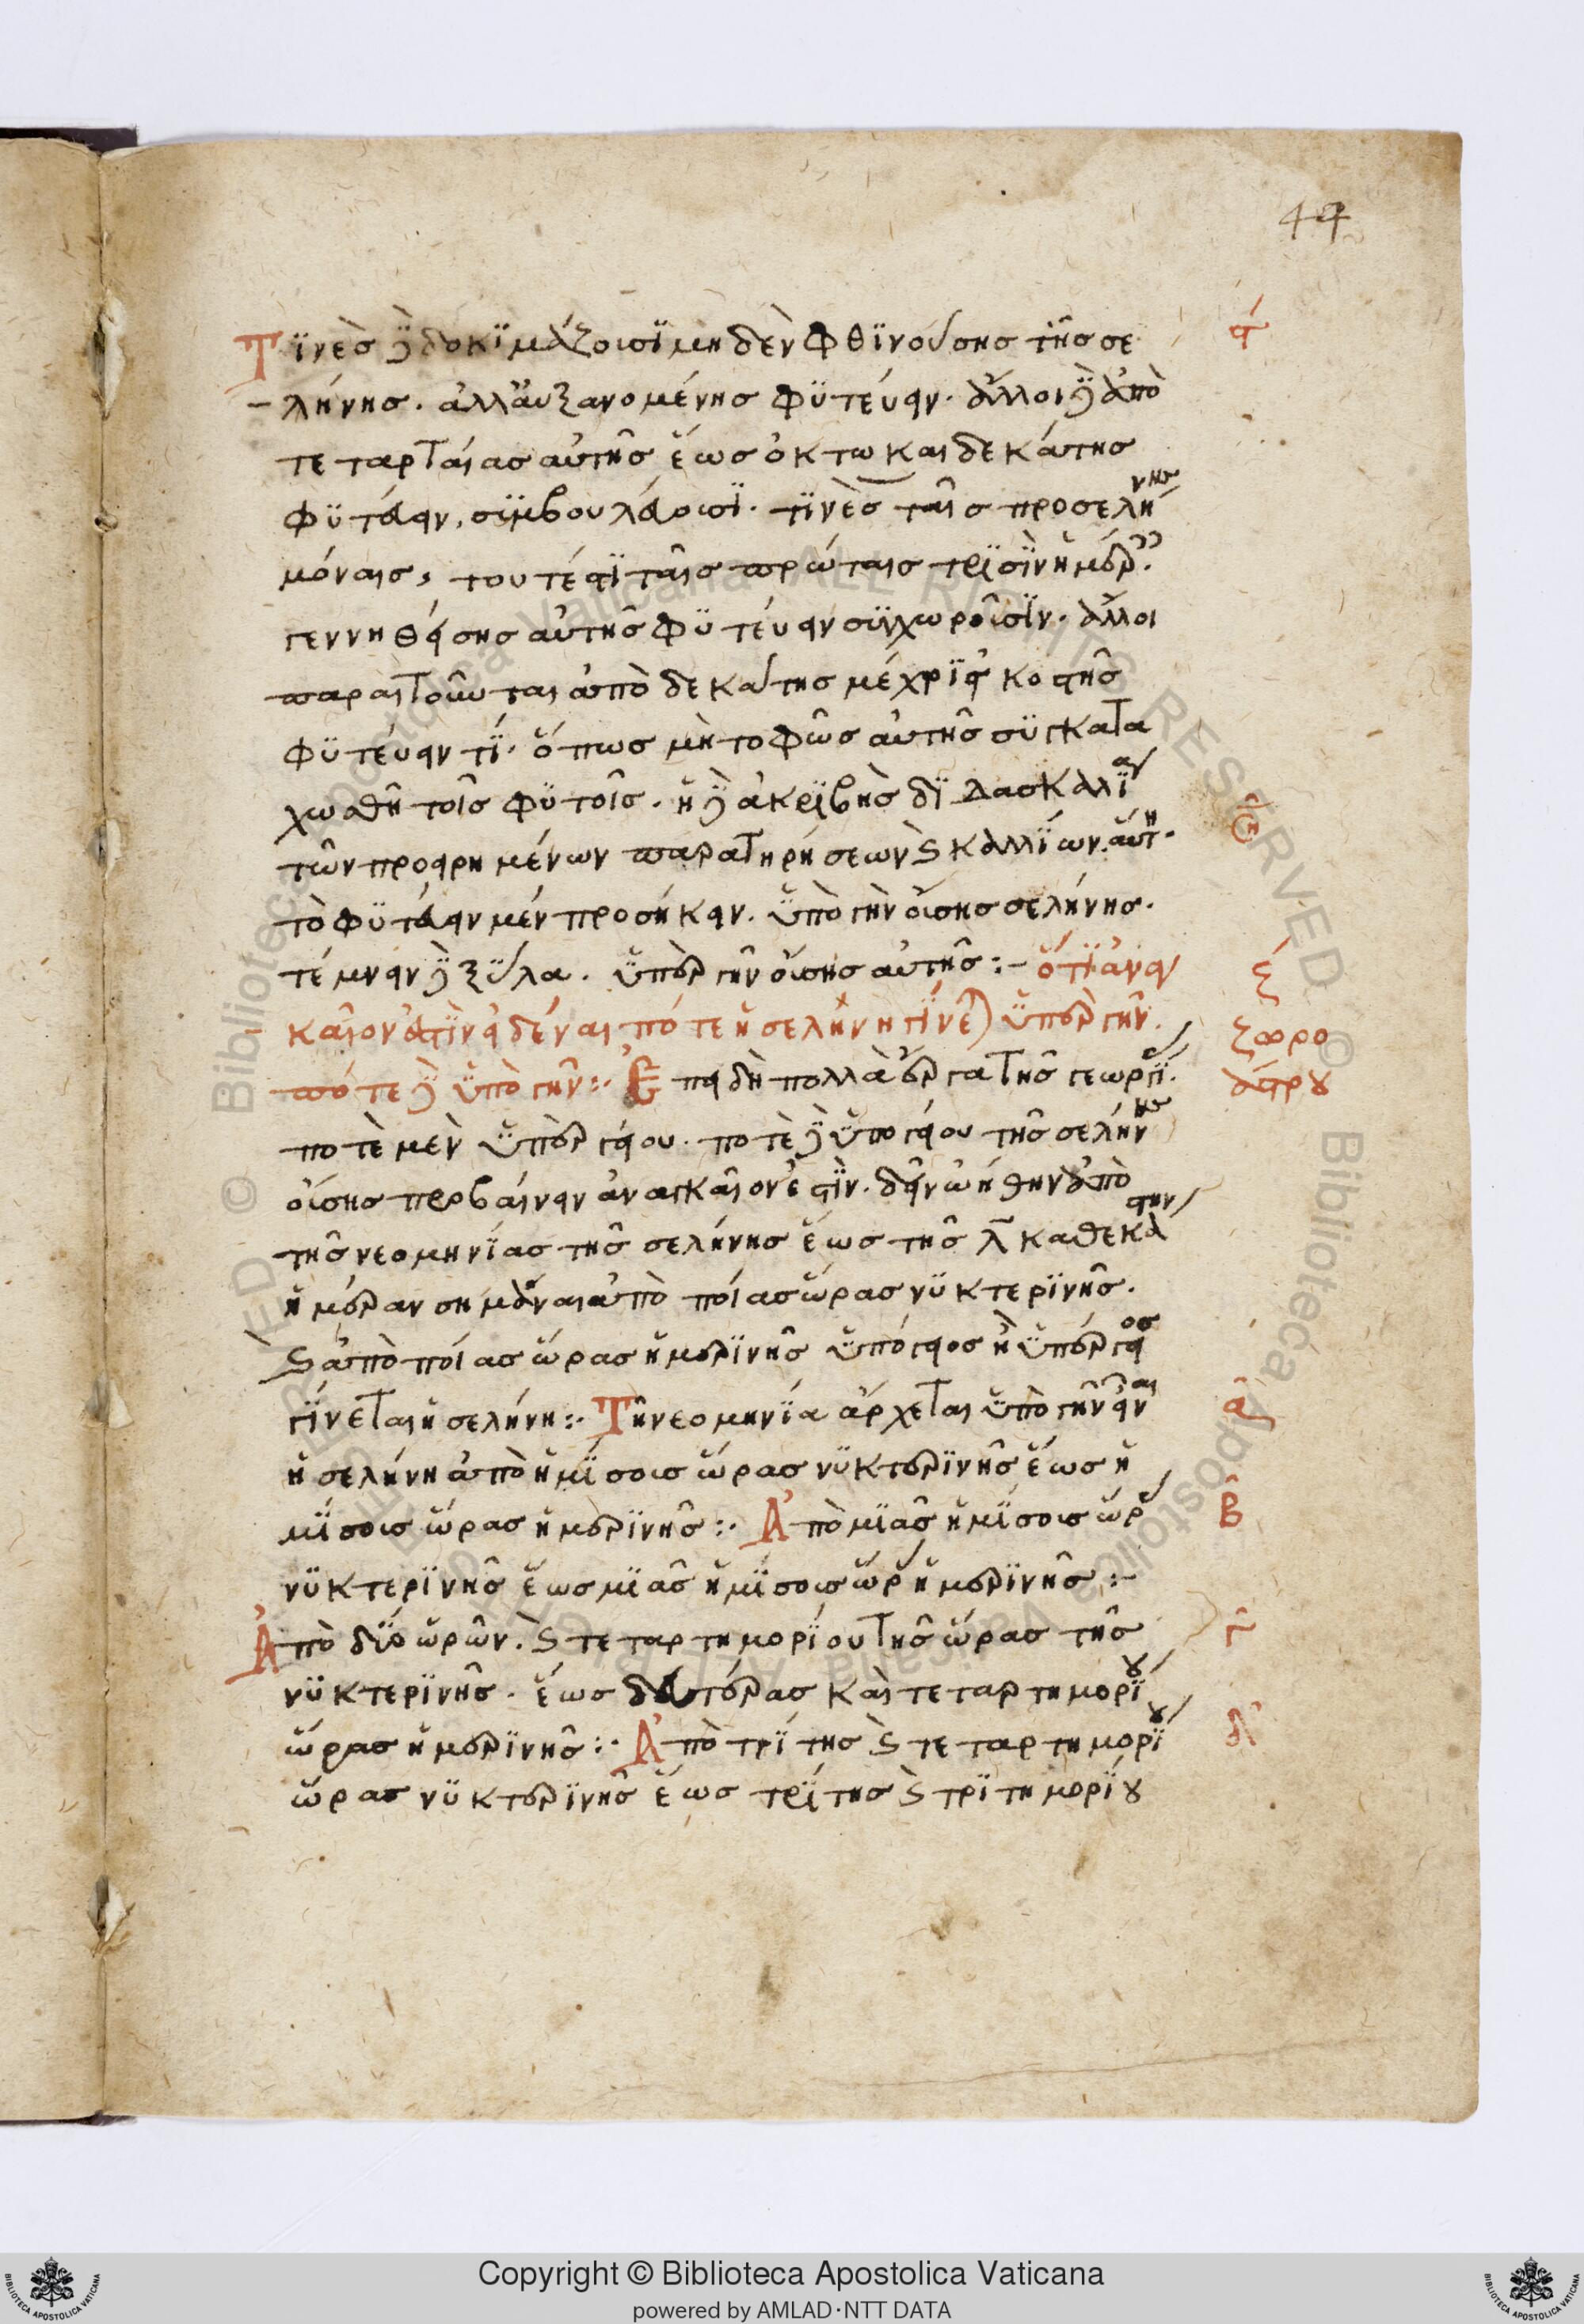 44
Τϊνὲσ δὲ δοκϊμάζουσϊ μηδὲν φθϊνούσησ τῆσ σε
λήνησ. ἀλλ' αὐξανομένησ φϋτεύειν. ἄλλοι δὲ ἀπὸ
τεταρταίασ αὐτῆσ ἕωσ ὀκτωκαιδεκάτησ
φϋτεύειν, σϋμβουλεύουσϊ. τϊνὲσ ταῖσ προσελήνησ
μόναισ, τουτέστϊ ταῖσ πρώταισ τρϊσὶν ἡμέραισ.
γεννηθείσησ αὐτῆσ φϋτεύειν συγχωροῦσϊν. ἄλλοι
παραιτοῦνται ἀπὸ δεκάτησ μέχρϊσ εἰκοστῆσ
φϋτεύειν τϊ. ὅπωσ μὴ το φῶσ αὐτῆσ σϋγκατα
χωσθῆ τοῖσ φϋτοῖσ. ἡ δὲ ἀκρϊβὴσ δϊδασκαλϊα
τῶν προειρημένων παρατηρήσεων καὶ καλλϊων. αὕτη.
τὸ φϋτεύειν μέν προσήκειν. ὑπὸ γῆν οὔσησ σελήνησ.
τέμνειν δὲ ξϋλα. ὑπὲρ γῆν οὔσησ αὐτῆσ:- ὅτϊ ἀναγ
καῖον ἐστϊν εἰδέναι πότε ἡ σελήνη γϊνεται ὑπὲρ γῆν.
πότε δὲ ὑπὸ γῆν:· Ἐπειδὴ πολλὰ ἔργα τῆσ γεωργϊασ.
ποτὲ μεν ὑπὲργείου. ποτὲ δὲ ὑπογείου τῆσ σελήνησ
οὔσησ περβαίνειν ἀναγκαῖον ἐστϊν. δεῖν ὠήθην ἀπὸ
τῆσ νεομηνϊασ τῆσ σελήνησ ἕωσ τῆσ λ̄ καθεκάστην
ἡμέραν σημᾶναι ἀπὸ ποίασ ὥρασ νϋκτερϊνῆσ.
καὶ ἀπὸ ποίασ ὥρασ ἡμερϊνῆσ ὑπόγειοσ ἢ ὑπέργειοσ
γϊνεται ἡ σελήνη:· Τῆ νεομηνϊα ἄρχεται ὑπὸ γῆν εἶναι
ἡ σελήνη ἀπὸ ἡμϊσουσ ὥρασ νϋκτερϊνῆσ ἕωσ ἡ
μϊσουσ ὥρασ ἡμερϊνῆσ:· Ἀπὸ μϊᾶσ ἡμϊσουσ ὥρασ
νϋκτερϊνῆσ ἕωσ μϊᾶσ ἡμϊσουσ ὥρασ ἡμερϊνῆσ:-
Ἀπὸ δϋο ὡρῶν. καὶ τεταρτημορϊου τῆσ ὥρασ τῆσ
νϋκτερϊνῆσ. ἕωσ δευτέρασ καὶ τεταρτημορϊου
ὥρασ ἡμερϊνῆσ:· Ἀπὸ τρϊτησ καὶ τεταρτημορϊου
ὥρασ νϋκτερϊνῆσ ἕωσ τρϊτησ καὶ τρϊτημορϊου
ζωρο
άστρου
α
β
γ
δ
Copyright © Biblioteca Apostolica Vaticana
powered by AMLAD·NTT DATA